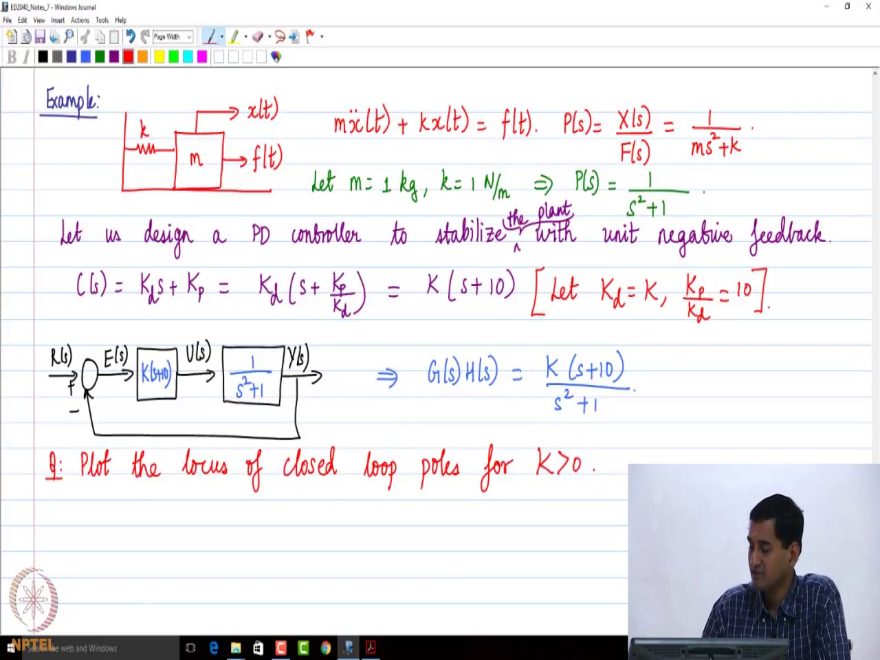 ED2040_Notes_7 - Windows Journal
File Edit View Insert Actions Tools Help
Page Width
B I
Example:
k
m
x(t)
f(t)
mẍ(t) + kx(t) = f(t). P(s) = X(s)/F(s) = 1/(ms²+k).
Let m = 1 kg, k = 1 N/m ⇒ P(s) = 1/(s²+1).
Let us design a PD controller to stabilize ^the plant with unit negative feedback.
C(s) = K_d s + K_p = K_d (s + K_p/K_d) = K (s+10) [Let K_d = K, K_p/K_d = 10].
R(s) + − E(s) K(s+10) U(s) 1/(s²+1) Y(s) ⇒ G(s)H(s) = K (s+10)/(s²+1).
Q: Plot the locus of closed loop poles for K>0.
NPTEL
Search the web and Windows